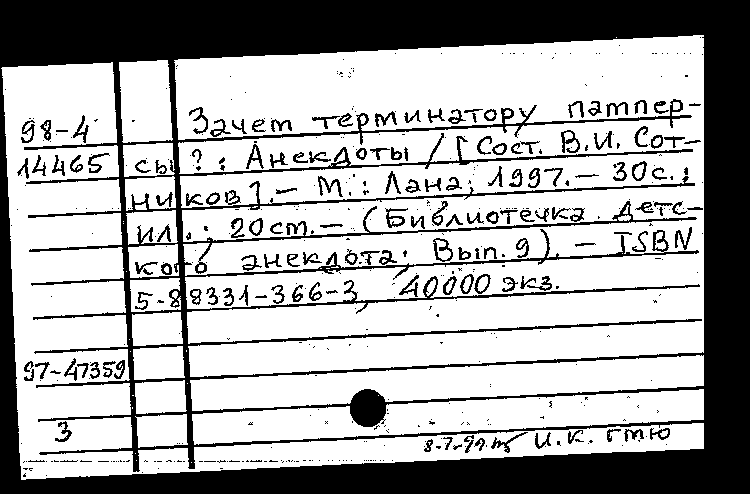 98-4 Зачет терминатору пампер-
14465 сы? : Анекдоты / [Сост. В.И. Сот-
ников]. – М. : Лана, 1997. – 30с. :
ил. ; 20см. – (Библиотечка детс-
кого анекдота; Вып. 9). – ISBN
5-88331-366-3, 40000 экз.
97-47359
3
И.К. гтю